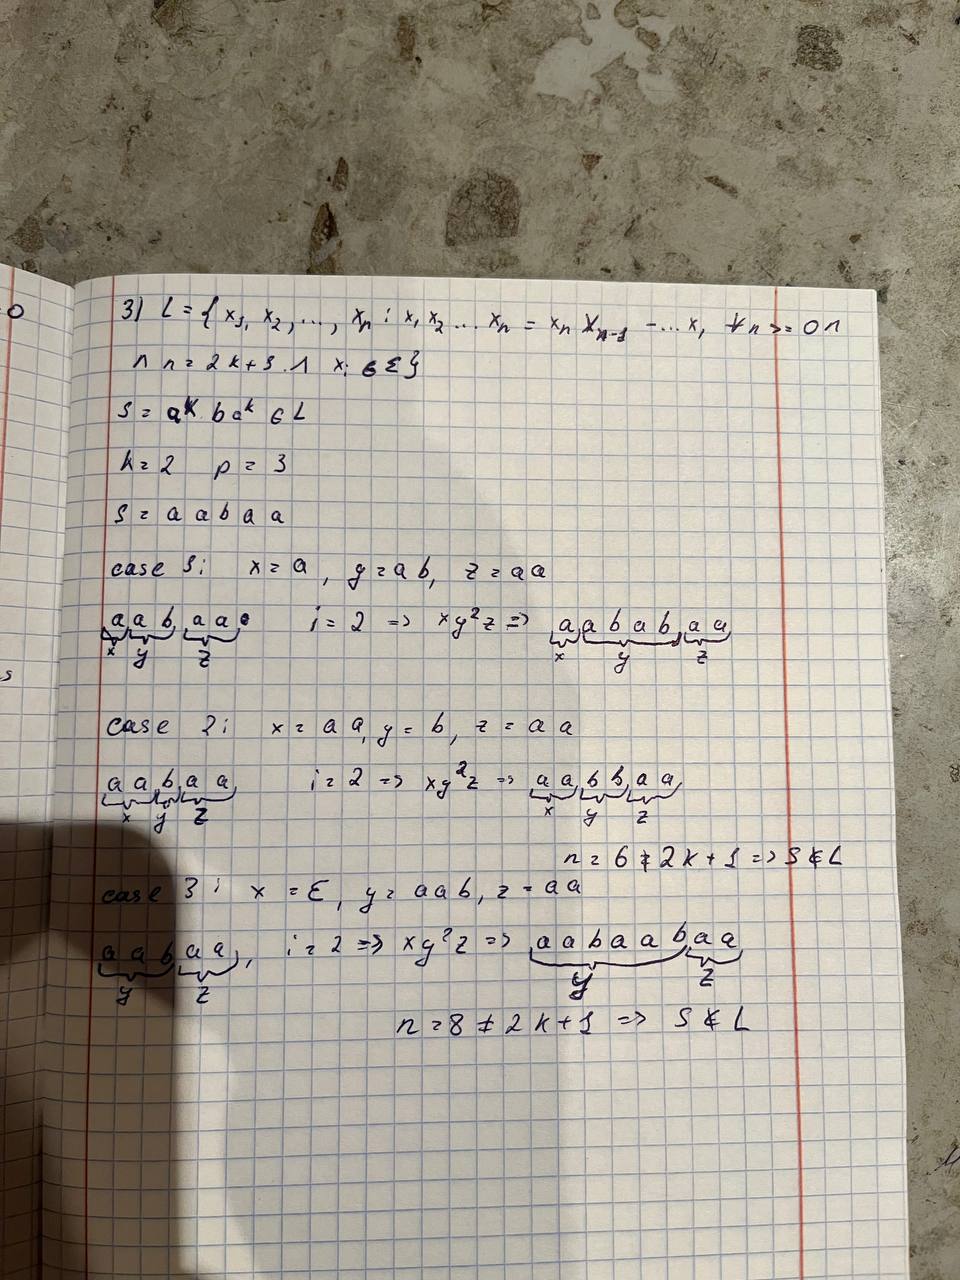 3) L = { x₁, x₂, ..., xₙ : x₁ x₂ ... xₙ = xₙ xₙ₋₁ ... x₁ ∀ n >= 0 ∧
∧ n = 2k+1 ∧ xᵢ ∈ Σ }
S = aᵏ b aᵏ ∈ L
k = 2 p = 3
S = a a b a a
case 1: x = a, y = ab, z = aa
a a b a a i = 2 => xy²z => a a b a b a a
x y z x y z
case 2: x = aa, y = b, z = aa
a a b a a i = 2 => xy²z => a a b b a a
x y z x y z
n = 6 ≠ 2k+1 => S ∉ L
case 3: x = ε, y = aab, z = aa
a a b a a, i = 2 => xy²z => a a b a a b a a
y z y z
n = 8 ≠ 2k+1 => S ∉ L